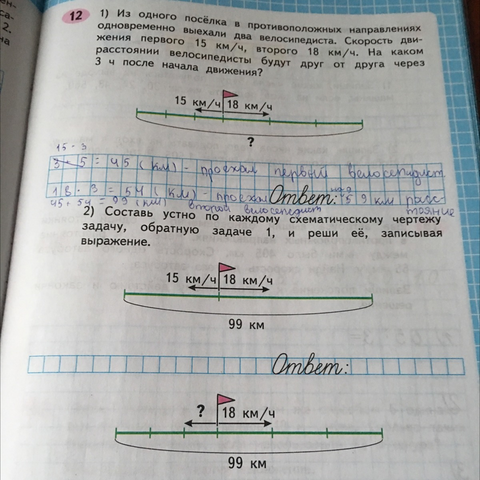 12 1) Из одного посёлка в противоположных направлениях
одновременно выехали два велосипедиста. Скорость дви-
жения первого 15 км/ч, второго 18 км/ч. На каком
расстоянии велосипедисты будут друг от друга через
3 ч после начала движения?
15 км/ч 18 км/ч
?
15 · 3
= 45 (км) - проехал первый велосипедист
18 · 3 = 54 (км) - проехал Ответ: 99 км расс-
45 + 54 = 99 (км) второй велосипедист тояние
2) Составь устно по каждому схематическому чертежу
задачу, обратную задаче 1, и реши её, записывая
выражение.
15 км/ч 18 км/ч
99 км
Ответ:
? 18 км/ч
99 км